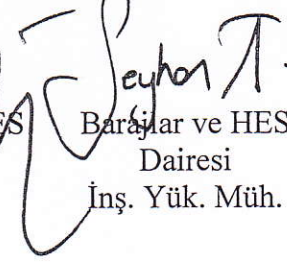 Seyhan T.
ES Barajlar ve HES
Dairesi
İnş. Yük. Müh.